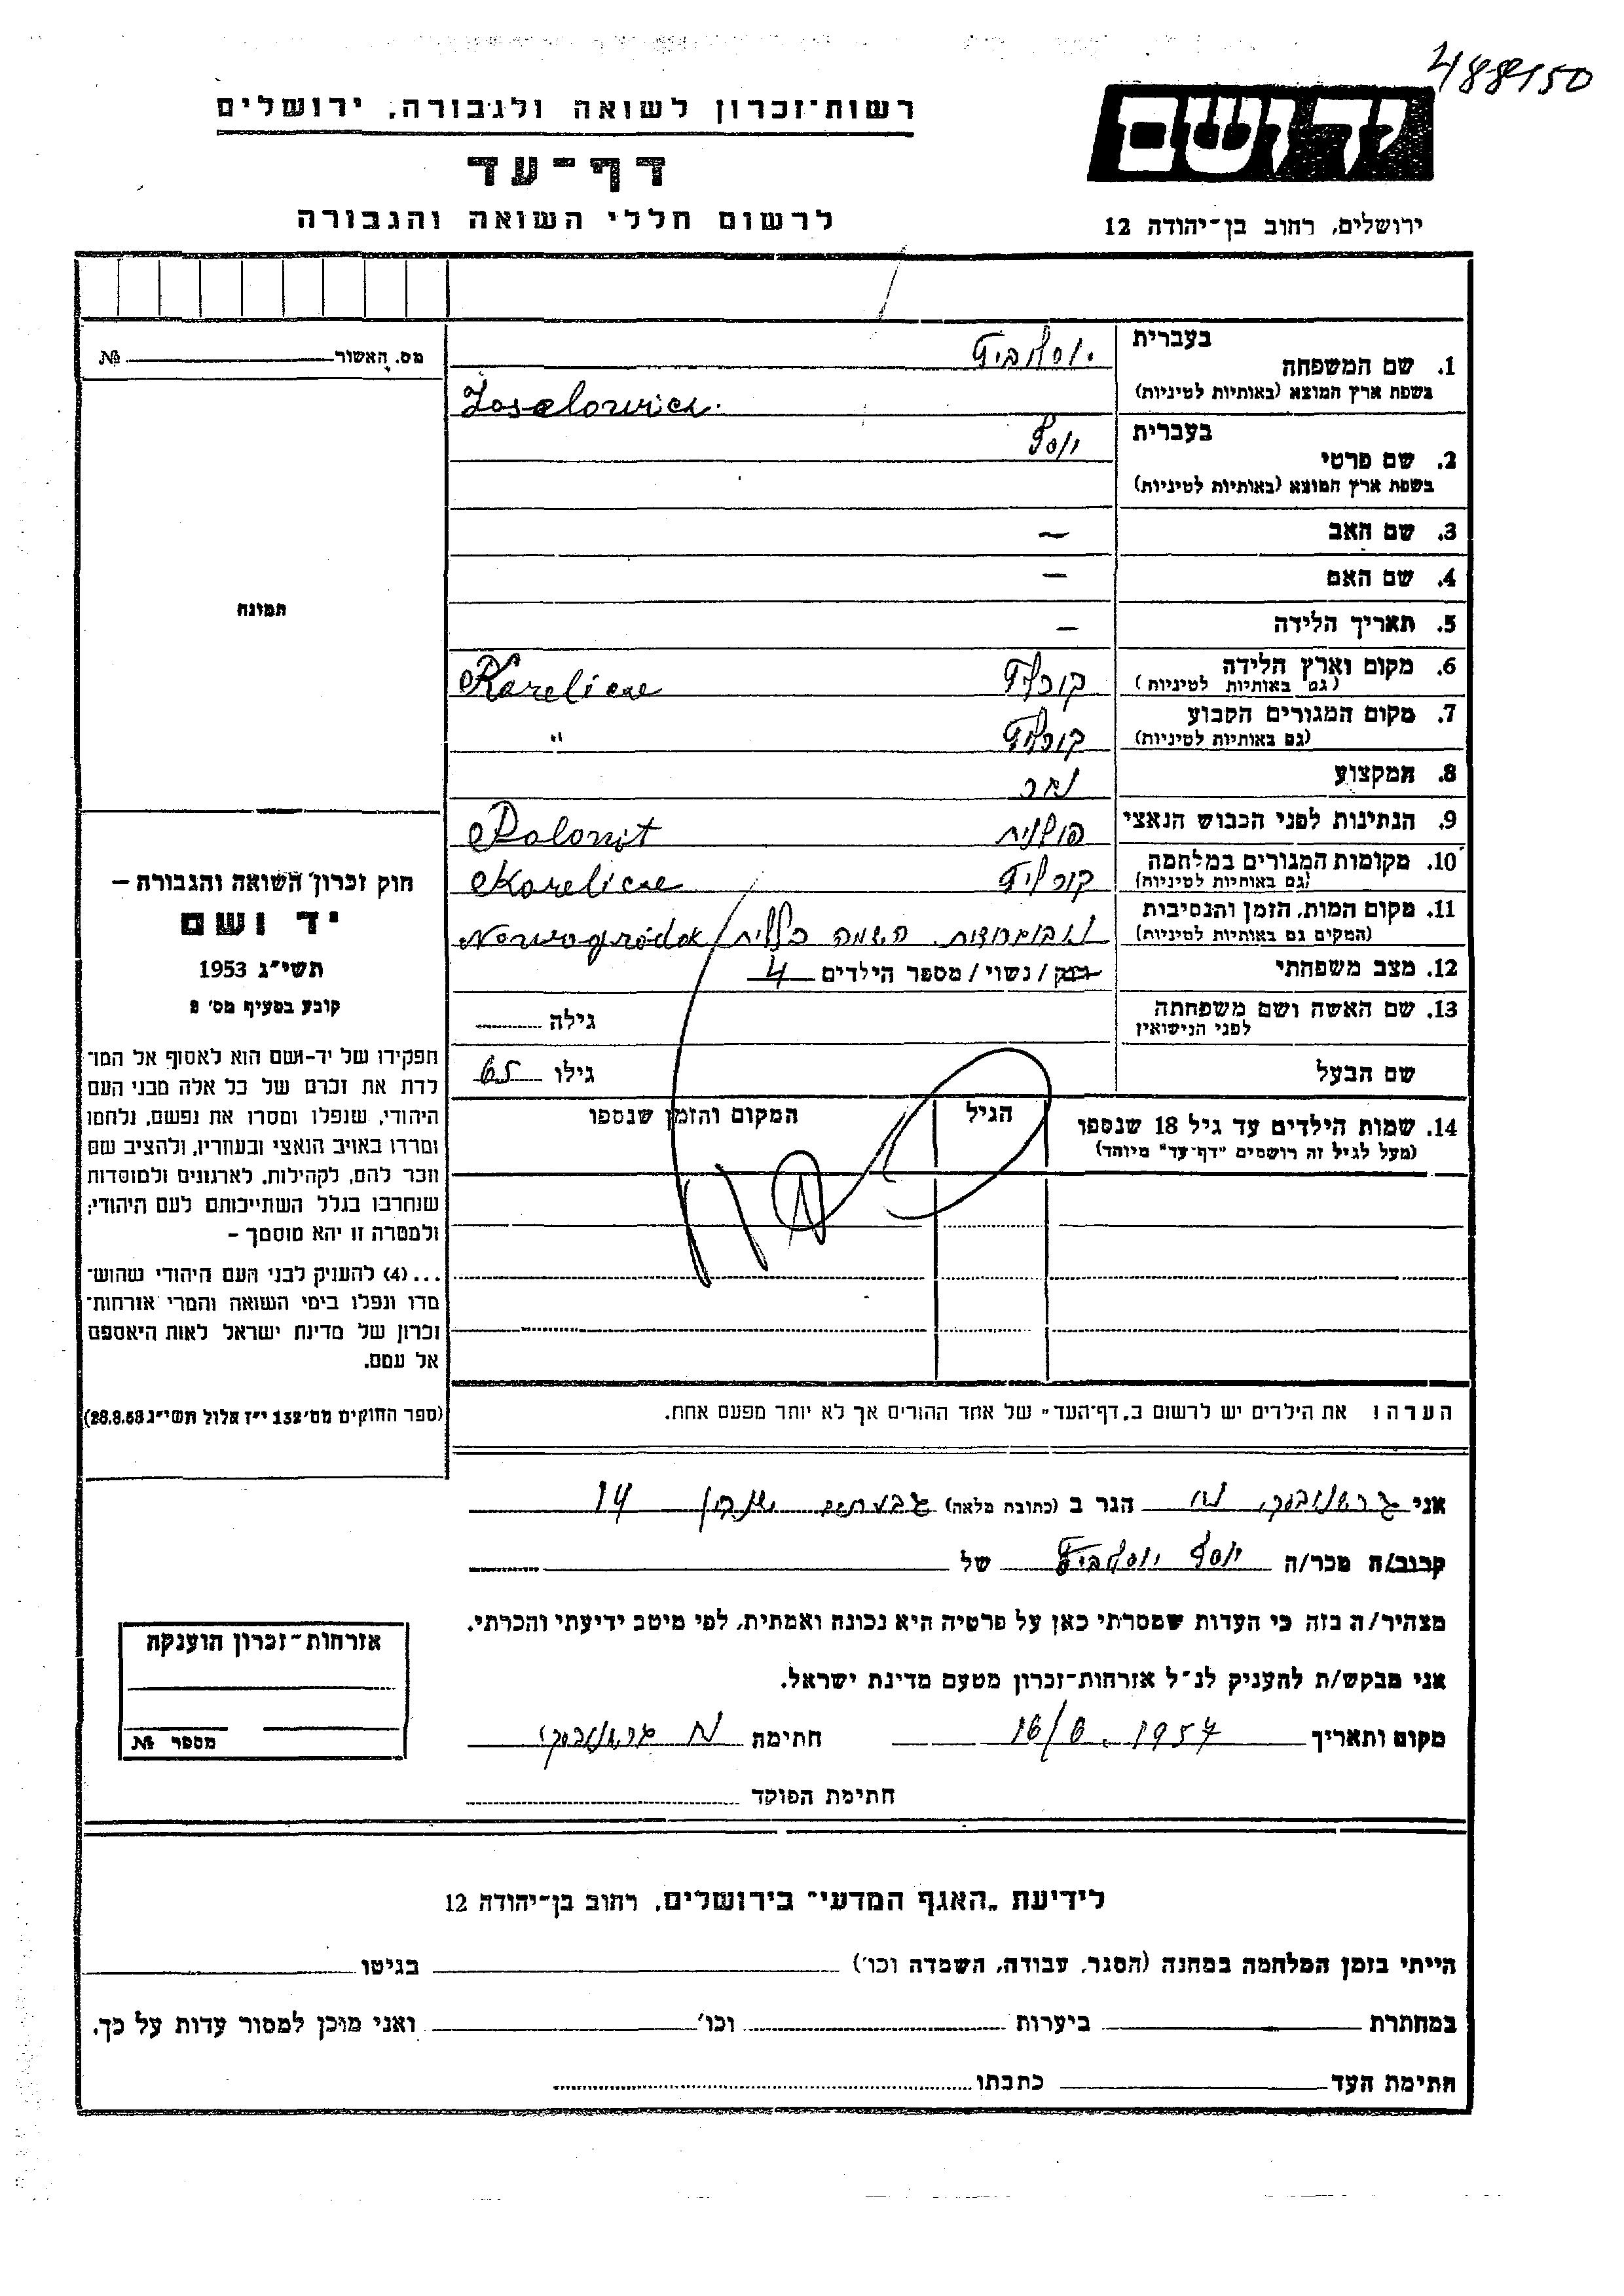 488150
יד ושם
רשות-זכרון לשואה ולגבורה, ירושלים
דף-עד
לרשום חללי השואה והגבורה
ירושלים, רחוב בן-יהודה 12
מס. האשור №
תמונה
1. שם המשפחה בעברית יוסלוביץ
בשפת ארץ המוצא (באותיות לטיניות) Joselowicz
2. שם פרטי בעברית יוסף
בשפת ארץ המוצא (באותיות לטיניות)
3. שם האב —
4. שם האם —
5. תאריך הלידה —
6. מקום וארץ הלידה (גם באותיות לטיניות) קורליץ Korelicze
7. מקום המגורים הקבוע (גם באותיות לטיניות) קורליץ "
8. המקצוע
9. הנתינות לפני הכבוש הנאצי פולנית Polonit
10. מקומות המגורים במלחמה (גם באותיות לטיניות) קורליץ Korelicze
11. מקום המות, הזמן והנסיבות (המקום גם באותיות לטיניות) השמדה כללית / Nowogródok
12. מצב משפחתי רווק / נשוי / מספר הילדים 4
13. שם האשה ושם משפחתה לפני הנישואין גילה
שם הבעל גילו 65
14. שמות הילדים עד גיל 18 שנספו הגיל המקום והזמן שנספו
(מעל לגיל זה רושמים "דף-עד" מיוחד)
הערה: את הילדים יש לרשום ב"דף-העד" של אחד ההורים אך לא יותר מפעם אחת.
חוק זכרון השואה והגבורה —
יד ושם
תשי"ג 1953
קובע בסעיף מס' 2
תפקידו של יד-ושם הוא לאסוף אל המו-
לדת את זכרם של כל אלה מבני העם
היהודי, שנפלו ומסרו את נפשם, נלחמו
ומרדו באויב הנאצי ובעוזריו, ולהציב שם
וזכר להם, לקהילות, לארגונים ולמוסדות
שנחרבו בגלל השתייכותם לעם היהודי;
ולמטרה זו יהא מוסמך —
...(4) להעניק לבני העם היהודי שהוש-
מדו ונפלו בימי השואה והמרי אזרחות-
זכרון של מדינת ישראל לאות היאספם
אל עמם.
(ספר החוקים מס' 132 י"ז אלול תשי"ג 28.8.53)
אני הגר ב (כתובת מלאה) גבעתיים 14
קרוב/ה מכר/ה יוסף יוסלוביץ של
מצהיר/ה בזה כי העדות שמסרתי כאן על פרטיה היא נכונה ואמתית, לפי מיטב ידיעתי והכרתי.
אני מבקש/ת להעניק לנ"ל אזרחות-זכרון מטעם מדינת ישראל.
מקום ותאריך 16/6. 1957 חתימה
חתימת הפוקד
אזרחות-זכרון הוענקה
מספר №
לידיעת "האגף המדעי" בירושלים, רחוב בן-יהודה 12
הייתי בזמן המלחמה במחנה (הסגר, עבודה, השמדה וכו') בגיטו
במחתרת ביערות וכו' ואני מוכן למסור עדות על כך.
חתימת העד כתבתו